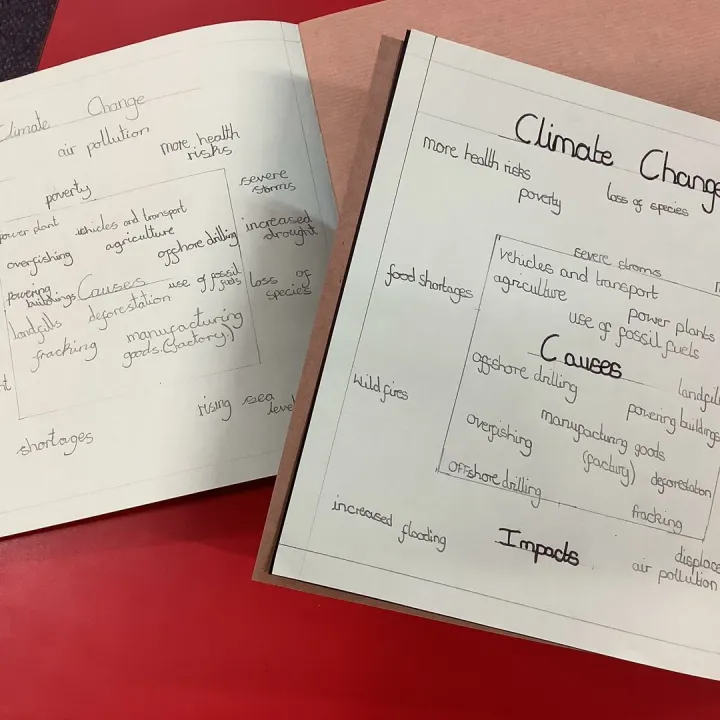 Climate Change
air pollution
more health
risks
poverty
severe
storms
power plant
vehicles and transport
agriculture
overfishing
offshore drilling
increased
drought
powering
buildings
Causes
use of fossil
fuels
loss of
species
landfills
deforestation
fracking
manufacturing
goods.(factory.)
rising sea
level
shortages
Climate Change
more health risks
poverty
loss of species
severe stroms
vehicles and transport
food shortages
agriculture
power plants
use of fossil fuels
Causes
offshore drilling
landfill
wildfires
powering buildings
manufacturing goods
(factory)
overfishing
deforestation
offshore drilling
fracking
increased flooding
Impacts
displace
air pollution